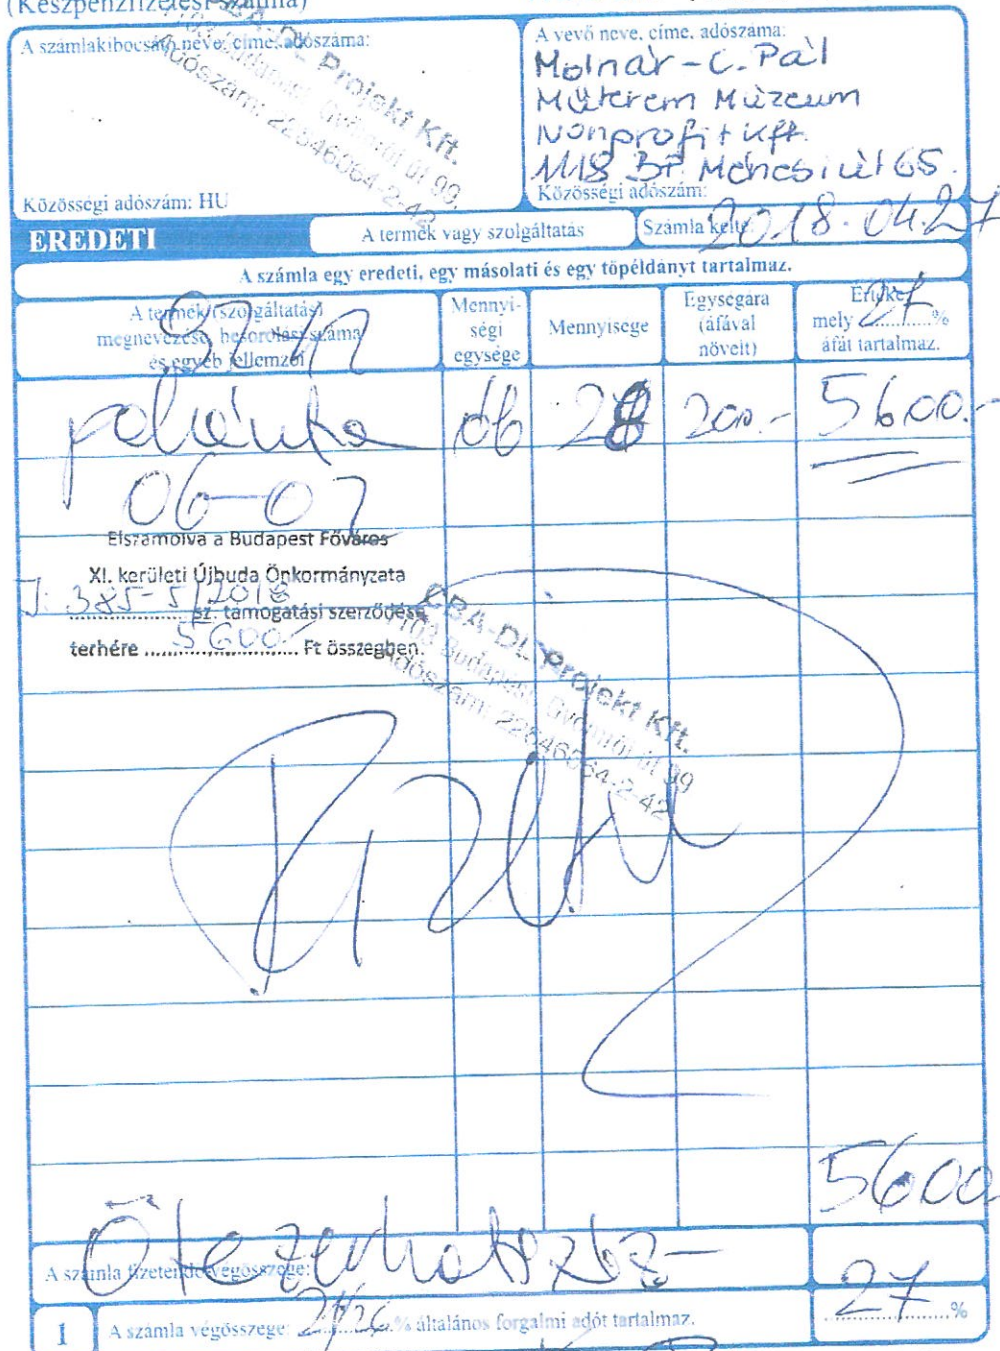 (Készpénzfizetési számla)
A számlakibocsátó neve, címe, adószáma:
CBA-DL- Projekt Kft.
1103 Budapest, Gyömrői út 99.
Adószám: 22646064-2-42
Közösségi adószám: HU
A vevő neve, címe, adószáma:
Molnár-C. Pál
Műterem Múzeum
Nonprofit Kft.
1118 BP. Ménesi út 65.
Közösségi adószám:
EREDETI
A termék vagy szolgáltatás
Számla kelte: 2018.04.27
A számla egy eredeti, egy másolati és egy tőpéldányt tartalmaz.
A termék (szolgáltatás) megnevezése, besorolási száma és egyéb jellemzői
Mennyi-
ségi
egysége
Mennyisége
Egységára
(áfával
növelt)
Értéke,
mely 27 %
áfát tartalmaz.
db 28 200.- 5600.-
06-07
Elszámolva a Budapest Főváros
XI. kerületi Újbuda Önkormányzata
J: 385-5/2018 sz. támogatási szerződése
terhére 5600 Ft összegben.
CBA-DL- Projekt Kft.
1103 Budapest, Gyömrői út 99
Adószám: 22646064-2-42
5600
A számla fizetendő végösszege: Ötezerhatszáz-
27 %
1
A számla végösszege: 21,26 % általános forgalmi adót tartalmaz.